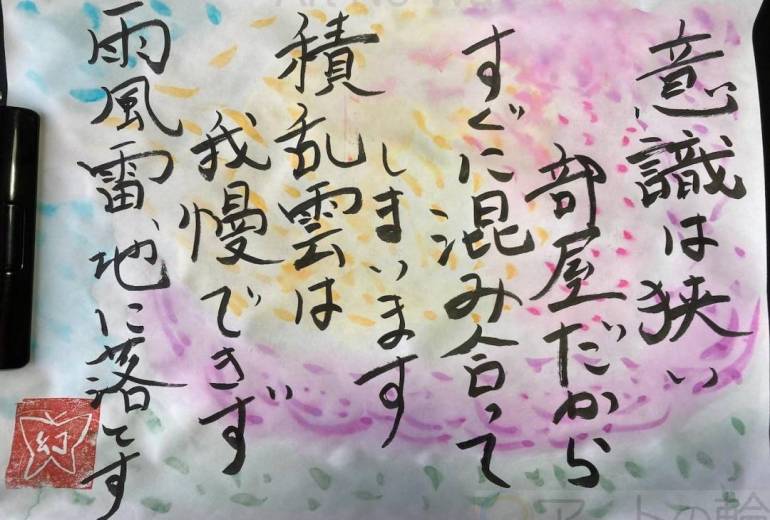 意識は狭い
部屋だから
すぐに混み合って
しまいます
積乱雲は
我慢できず
雨風雷地に落とす
幻
アートの輪